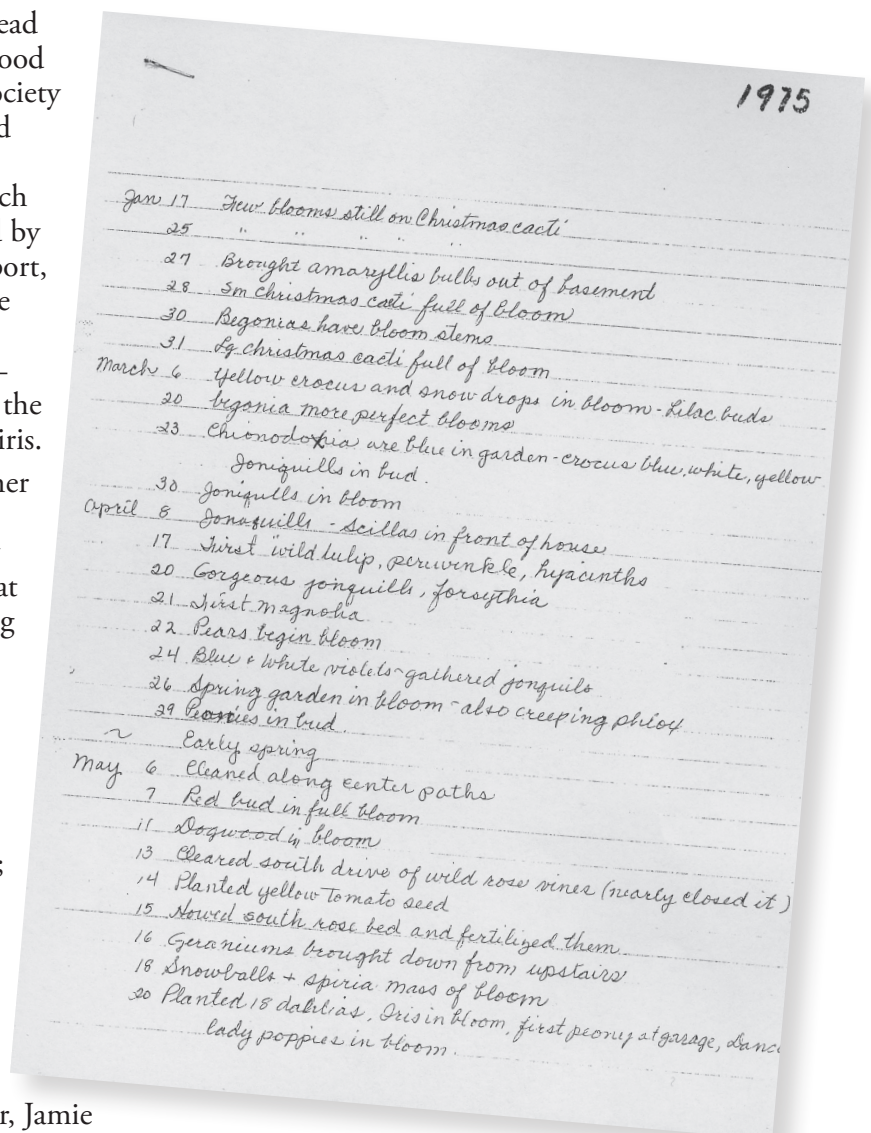 ead
ood
ociety
d
ch
l by
port,
e
–
the
iris.
ner
at
g
;
r, Jamie
1975
Jan 17 Few blooms still on Christmas cacti
25 " " " " "
27 Brought amaryllis bulbs out of basement
28 Sm Christmas cacti full of bloom
30 Begonias have bloom stems
31 Lg christmas cacti full of bloom
March 6 Yellow crocus and snow drops in bloom - Lilac buds
20 begonia more perfect blooms
23 Chionodoxia are blue in garden - crocus blue, white, yellow
Joniquills in bud.
30 Joniquills in bloom
April 8 Jonaquills - scillas in front of house
17 First "wild tulip, periwinkle, hyacinths
20 Gorgeous jonquills, forsythia
21 First magnolia
22 Pears begin bloom
24 Blue + White violets - gathered jonquils
26 Spring garden in bloom - also creeping phlox
29 Peonies in bud.
~ Early spring
May 6 Cleaned along center paths
7 Red bud in full bloom
11 Dogwood in bloom
13 Cleared south drive of wild rose vines (nearly closed it)
14 Planted yellow Tomato seed
15 Howed south rose bed and fertilized them
16 Geraniums brought down from upstairs
18 Snowballs + spiria mass of bloom
20 Planted 18 dahlias, Iris in bloom, first peony at garage, Danc
lady poppies in bloom.